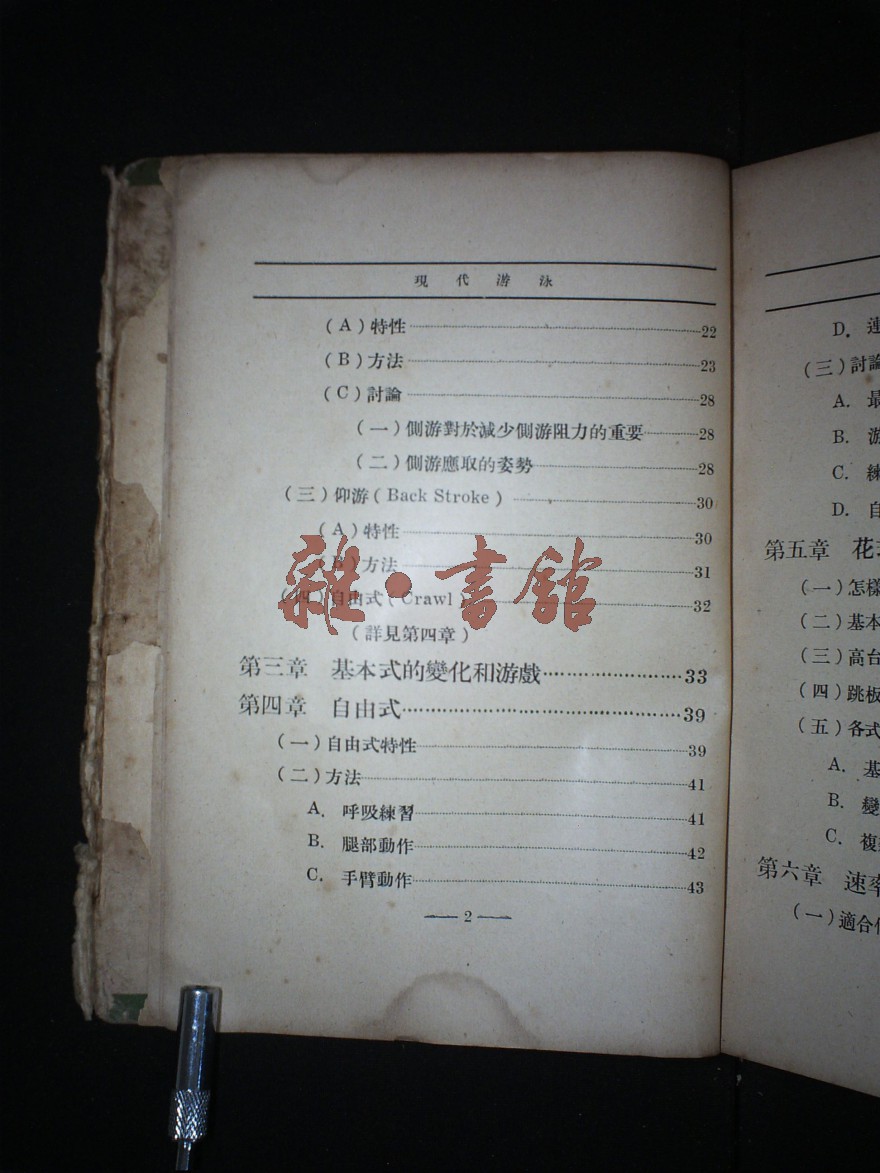 現代游泳
(A)特性 22
(B)方法 23
(C)討論 28
(一)側游對於減少側游阻力的重要 28
(二)側游應取的姿勢 28
(三)仰游(Back Stroke) 30
(A)特性 30
(B)方法 31
(四)自由式(Crawl) 32
(詳見第四章)
第三章 基本式的變化和游戲 33
第四章 自由式 39
(一)自由式特性 39
(二)方法 41
A. 呼吸練習 41
B. 腿部動作 42
C. 手臂動作 43
2
雜·書館
D. 連
(三)討論
A. 最
B. 游
C. 練
D. 自
第五章 花
(一)怎樣
(二)基本
(三)高台
(四)跳板
(五)各式
A. 基
B. 變
C. 複
第六章 速率
(一)適合